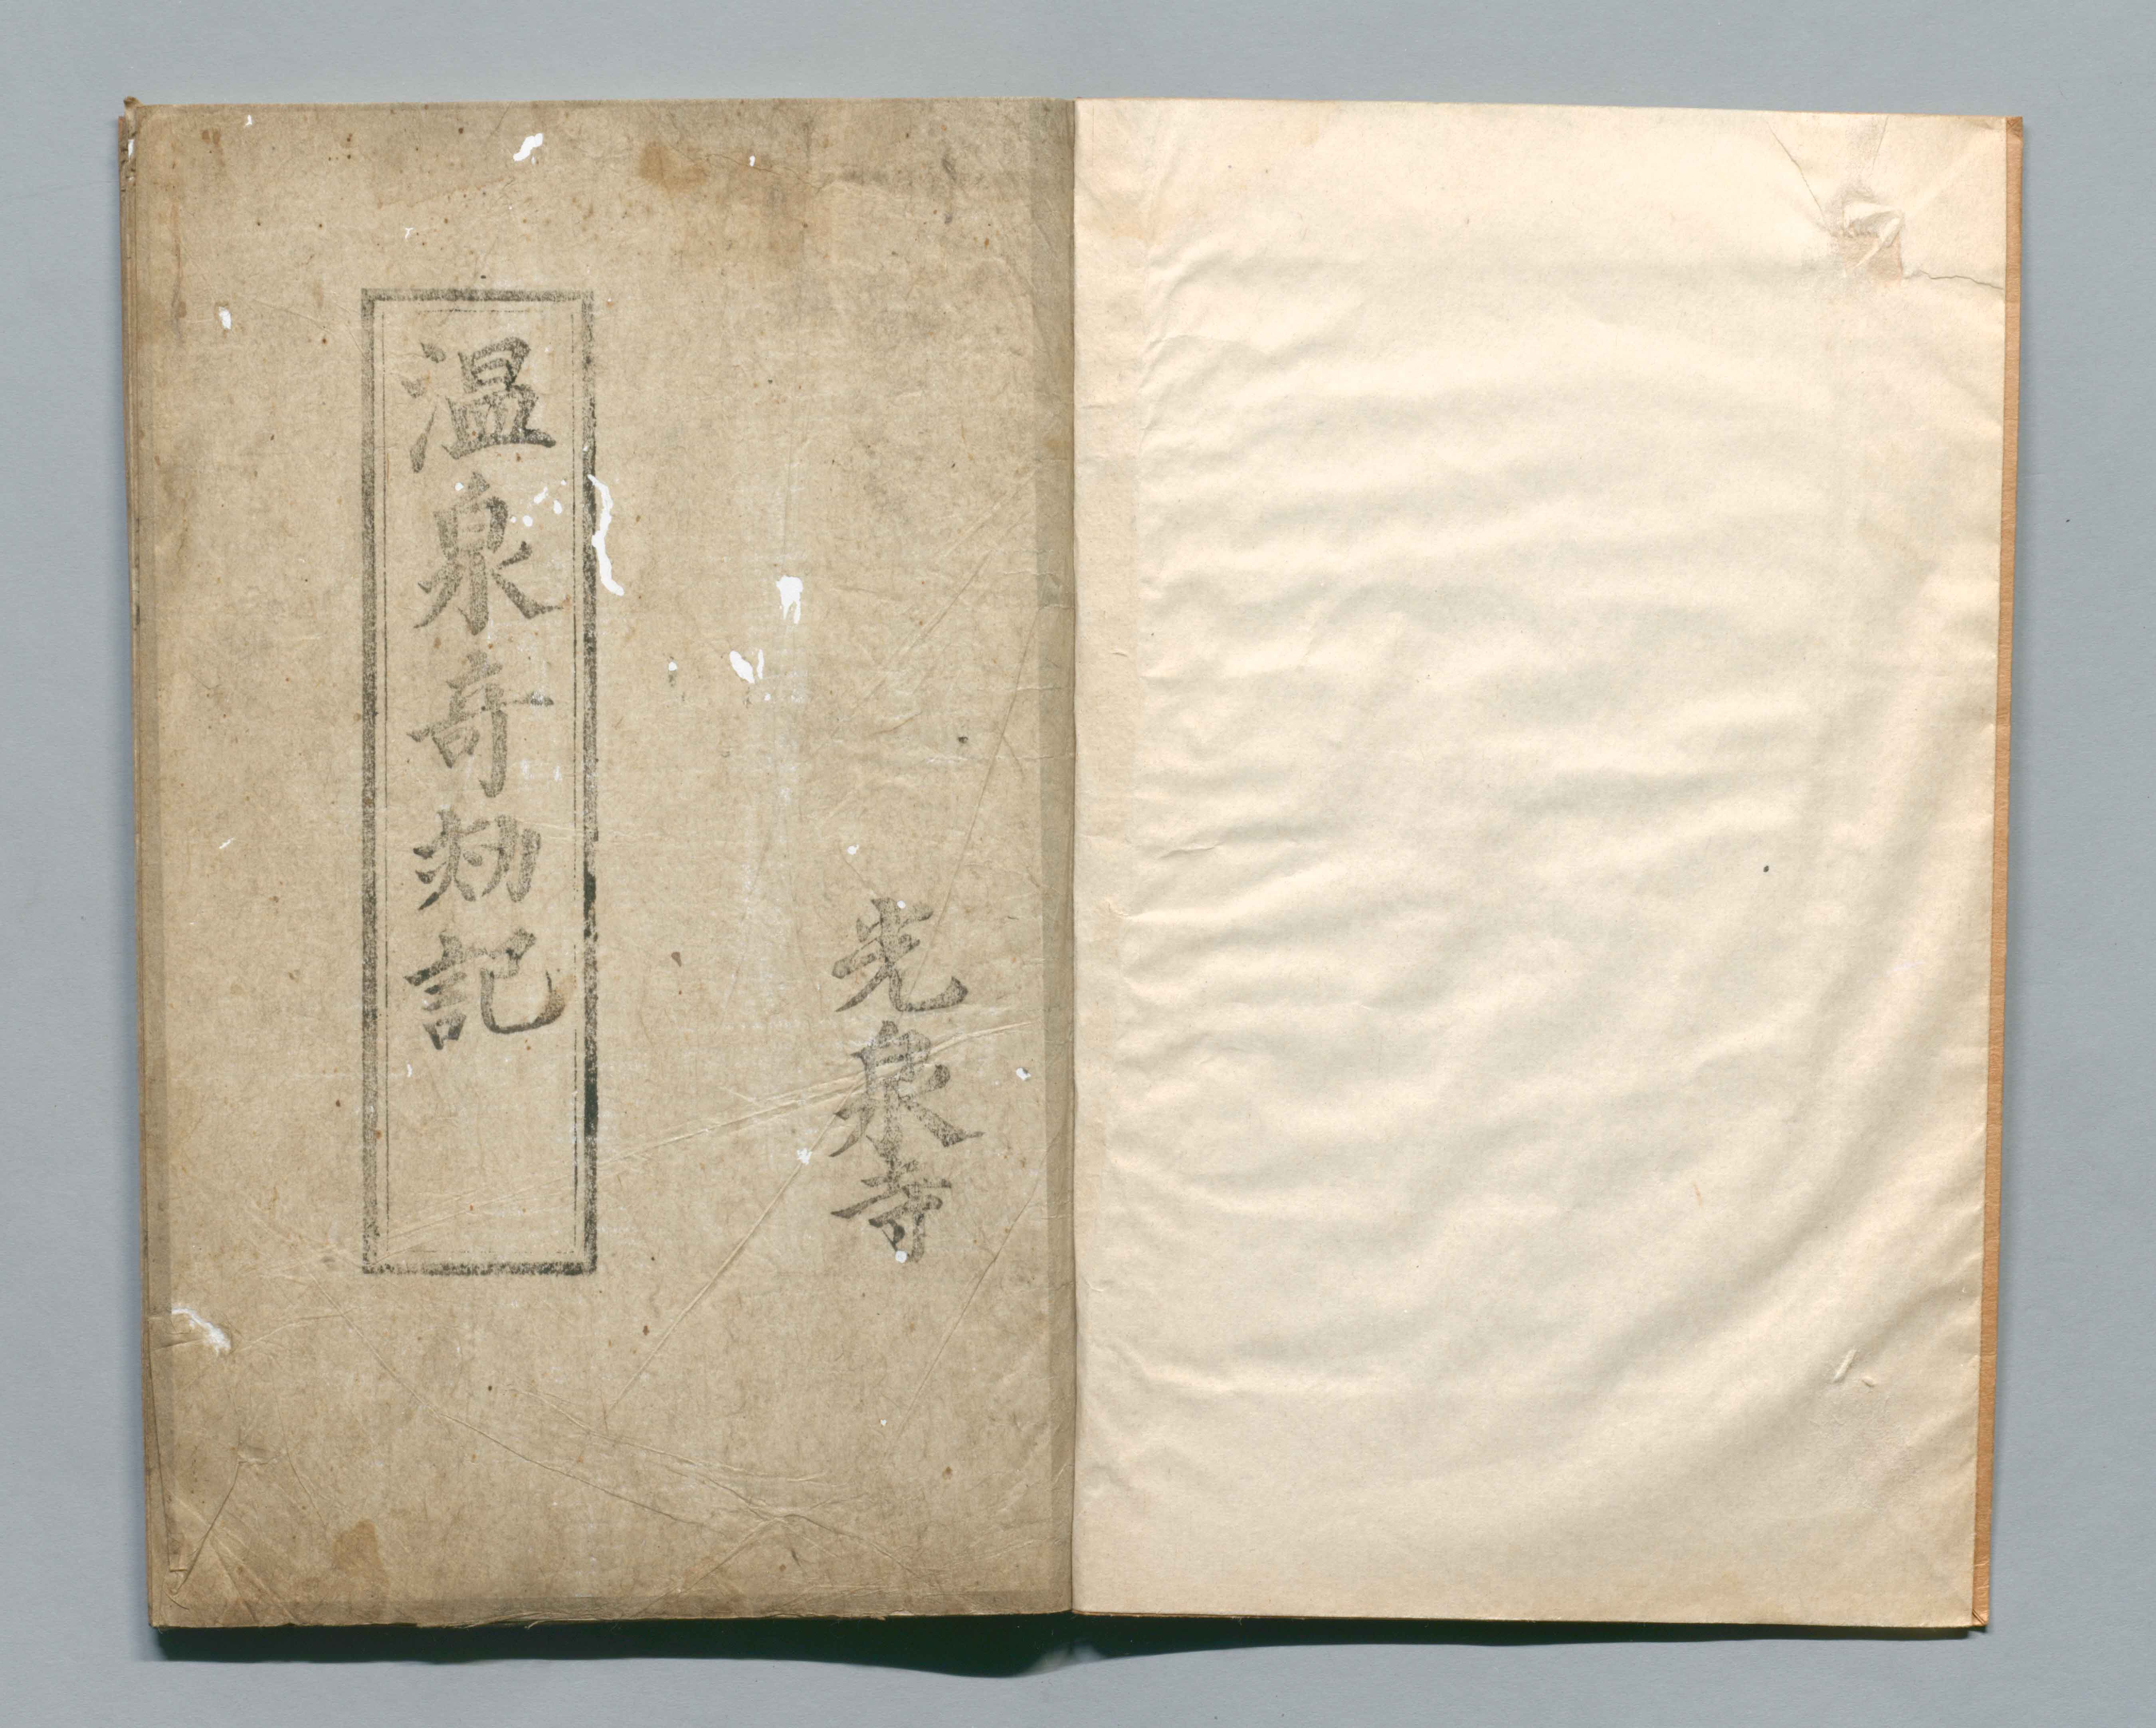 光泉寺
温泉奇効記